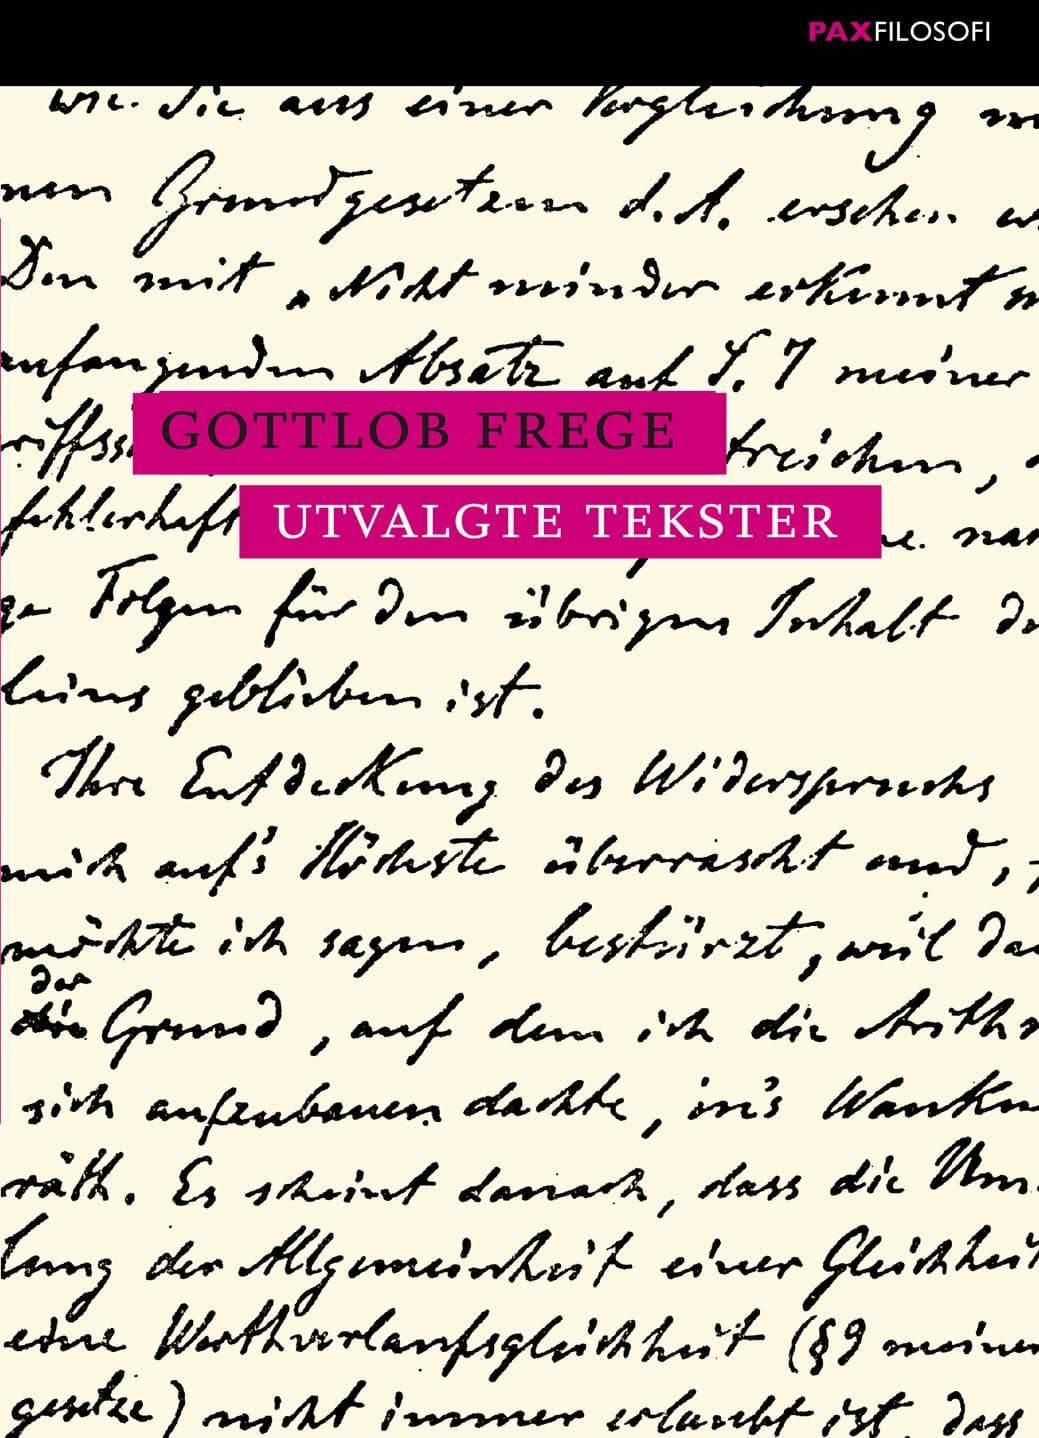 PAXFILOSOFI
wie Sie aus einer Vergleichung
nen Grundgesetzen d. A. ersehen
Den mit „Nicht minder erkennt
anfangenden Absatz auf S. 7 meiner
GOTTLOB FREGE
riffss treichen,
UTVALGTE TEKSTER
fehlerhaft ne.
ge Folgen für den übrigen Inhalt
leins geblieben ist.
Ihre Entdeckung des Widerspruchs
mich auf's Höchste überrascht und,
möchte ich sagen, bestürzt, weil
der
Grund, auf dem ich die Arithm
sich aufzubauen dachte, in's Wanken
räth. Es scheint danach, dass die Um
lung der Allgemeinheit einer Gleichheit
eine Werthverlaufsgleichheit (§9 meiner
gesetze) nicht immer erlaubt ist, dass